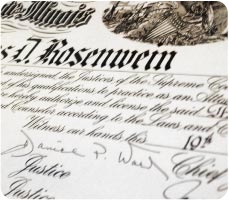 Illinois
s D. Rosenwein
undersigned, the Justices of the Supreme Co
his qualifications to practice as an At
hereby authorize and license the said
Counselor according to the Laws and C
Witness our hands this 19th
Daniel P. Ward Chief
Justice
Justice